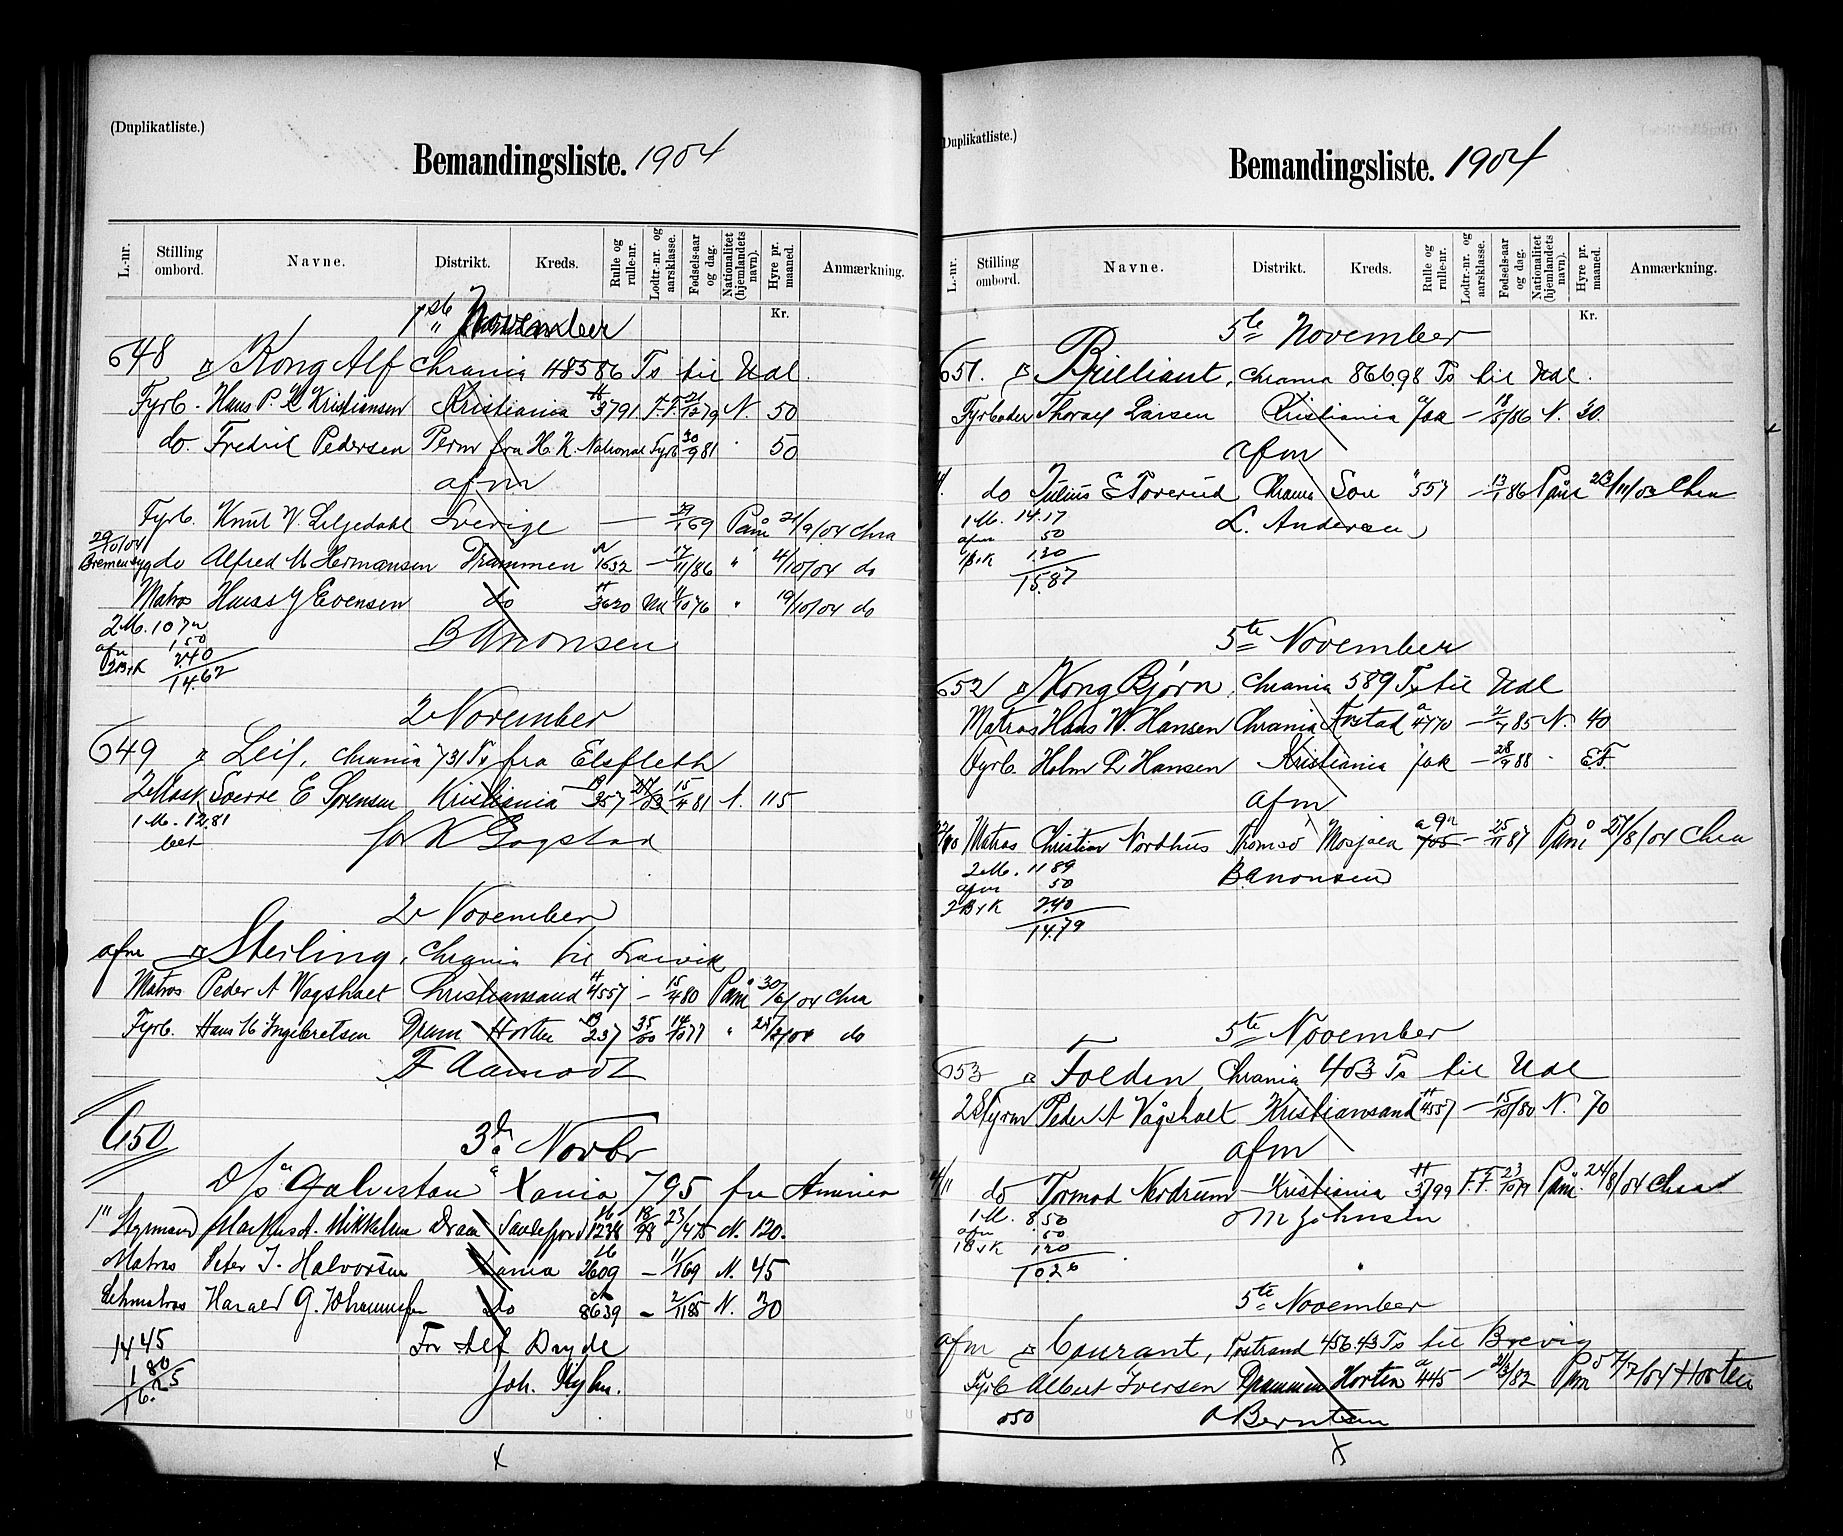 (Duplikatliste.)
Bemandingsliste. 1904
L.-nr.
Stilling ombord.
Navne.
Distrikt.
Kreds.
Rulle og rulle-nr.
Lodtr.-nr. og aarsklasse.
Fødsels-aar og dag.
Nationalitet (hjemlandets navn).
Hyre pr. maaned.
Anmærkning.
Kr.
1ste November
648 Kong Alf Chrania 48586 Ts til Udl.
Fyrb. Hans P. Kristiansen Kristiania 3791 F.F. 21/12 79 N. 50
do. Fredrik Pedersen Perm fra H. K. National Fyrb 30/9 81 50
afm
Fyrb. Knut V. Liljedahl Sverige — 69 Påm 21/9/04 Chra
29/10/04 Bremen do Alfred M Hermansen Drammen 1632 — 17/11/86 " 4/10/04 do
Matros Hans Evensen do 3620 " 19/10/04 do
2 M. 10 72
afm 1.50
2 B & K 2.40
14.62
B Anonsen
2 November
649 Leif, Chrania 731 Ts fra Elsfleth
2 Mask Sverre E Sørensen Kristiania 257 15/4 81 N. 115
1 M. 12.81
bet
for K Gogstad
2 November
afm Sterling, Chrania til Larvik
Matros Peder A Vagshalt Christiansand 4557 — 15/ 80 Påm 30/6/04 Chra
Fyrb. Hans Ingebretsen Dram Horten 237 35/00 14/10 77 " do
F Aamodt
650
3die Novbr
D/s "Galveston" Xania 795 fra America
1ste Styrmand Markus A. Mikkelsen Dram Sandefjord 1238 18/98 23/4 75 N. 120.
Matros Peter J. Halvorsen Xania 2609 — 69 N. 45
Letmatros Harald G. Johannessen do 8639 — 2/11 85 N. 30
14 45
1 80
16.25
For Alf
Joh.
(Duplikatliste.)
Bemandingsliste. 1904
L.-nr.
Stilling ombord.
Navne.
Distrikt.
Kreds.
Rulle og rulle-nr.
Lodtr.-nr. og aarsklasse.
Fødsels-aar og dag.
Nationalitet (hjemlandets navn).
Hyre pr. maaned.
Anmærkning.
Kr.
5te November
651. Brilliant, Chrania 866.98 Ts til Udl.
Fyrbøder Thoralf Larsen Kristiania — 18/5/86 N. 30.
afm
do Julius E Toverud Chrania Son 557 — 13/1 86 Påm 23/11/03 Chra
1 M. 14.17
afm 50
1 B & K 1.20
15.87
L. Andersen
5te November
652 Kong Bjørn, Chrania 589 Ts til Udl
Matros Hans W. Hansen Chrania 4770 — 85 N. 40
Fyrb. Holm L Hansen Kristiania — 28/ 88 E.F.
afm
Matros Christian Nordhus Tromsø Mosjøen 705 — 25/11 87 Påm 27/8/04 Chra
2 M. 11 89
afm 50
2 B & K 2.40
14.79
B Anonsen
5te November
653 Folden, Chrania 403 Ts til Udl
2 Styrm Peder A Vågshalt Kristiansand 4557 — 15/ 80 N. 70
afm
4/11 do Tormod Nordrum Kristiania 3799 F.F. 23/10 79 Påm 24/8/04 Chra
1 M. 8.50
afm .50
1 B & K 1.20
10.20
M Johnsen
5te November
afm Courant, Porsgrund 456.43 Ts til Brevig
Fyrb Albert Iversen Drammen Horten 445 — 82 Påm Horten
050
O Berntsen